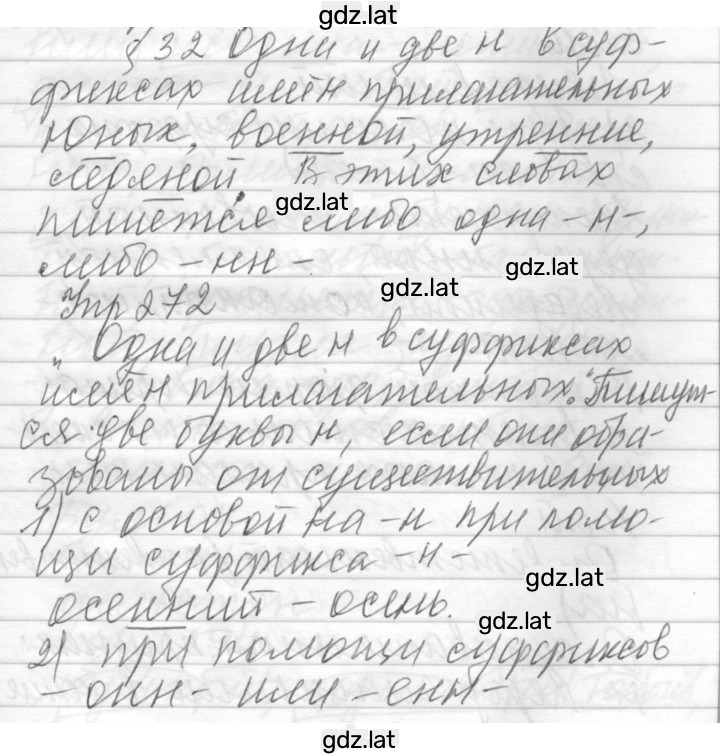 gdz.lat
§ 32 Одна и две н в суф-
фиксах имён прилагательных
Юных, военной, утренние,
ледяной. В этих словах
gdz.lat
пишется либо одна -н-,
либо -нн-.
gdz.lat
gdz.lat
Упр 272
"Одна и две н в суффиксах
имён прилагательных." Пишут-
ся две буквы н, если они обра-
зованы от существительных
1) с основой на -н при помо-
щи суффикса -н-
gdz.lat
осенний - осень.
gdz.lat
2) при помощи суффиксов
-онн- или -енн-
gdz.lat